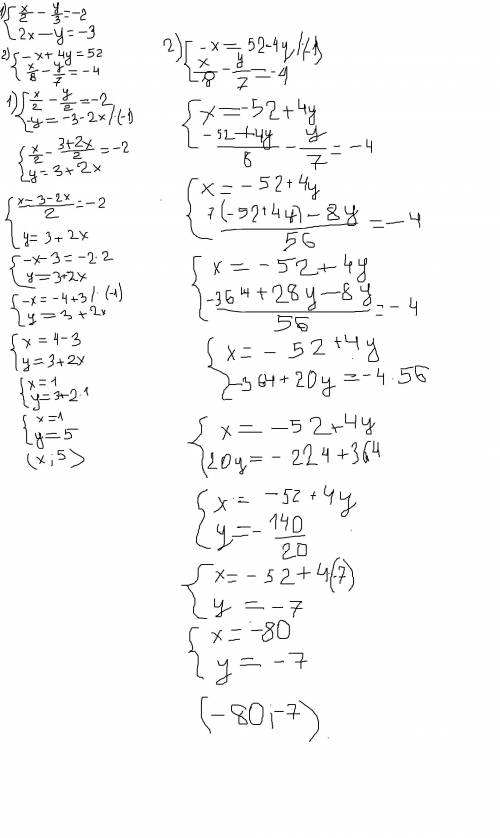 1) { x/2 - y/3 = -2
2x - y = -3
2) { -x + 4y = 52
x/8 - y/7 = -4
1) { x/2 - y/2 = -2
-y = -3 - 2x /·(-1)
{ x/2 - 3+2x/2 = -2
y = 3 + 2x
{ x - 3 - 2x/2 = -2
y = 3 + 2x
{ -x - 3 = -2·2
y = 3 + 2x
{ -x = -4 + 3 /·(-1)
y = 3 + 2x
{ x = 4 - 3
y = 3 + 2x
{ x = 1
y = 3 + 2·1
{ x = 1
y = 5
(x ; 5)
2) { -x = 52 - 4y /·(-1)
x/8 - y/7 = -4
{ x = -52 + 4y
-52 + 4y/8 - y/7 = -4
{ x = -52 + 4y
7(-52 + 4y) - 8y/56 = -4
{ x = -52 + 4y
-364 + 28y - 8y/56 = -4
{ x = -52 + 4y
-364 + 20y = -4·56
{ x = -52 + 4y
20y = -224 + 364
{ x = -52 + 4y
y = -140/20
{ x = -52 + 4(-7)
y = -7
{ x = -80
y = -7
(-80 ; -7)